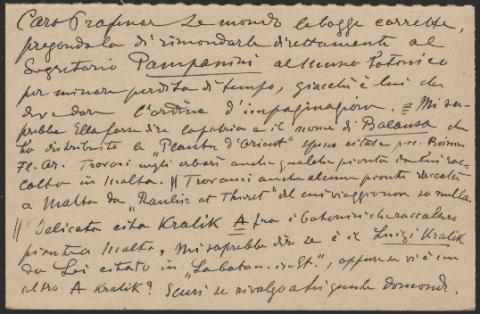 Caro Professor Le mando le bozze corrette,
pregandola di rimandarle direttamente al
Segretario Pampanini al Museo Botanico
per minore perdita di tempo, giacchè è lui che
deve dare l'ordine d'impaginazione. = Mi sa-
prebbe Ella forse dire la patria e il nome di Balansa che
ha distribuito le "Plantes d'Orient" spesso citate p. es. Boissier
Fl. Or. Trovasi negli erbari anche qualche pianta da lui rac-
colta in Malta. // Trovansi anche alcune piante raccolte
a Malta da "Paulin et Thuret" del cui viaggio non so nulla.
// Delicata cita Kralik A fra i botanici che raccolsero
piante a Malta, mi saprebbe dire se è il Luigi Kralik
da Lei citato in "La botan. in It.", oppure se vi è un
altro A Kralik? Scusi se rivolgo a Lei queste domande.